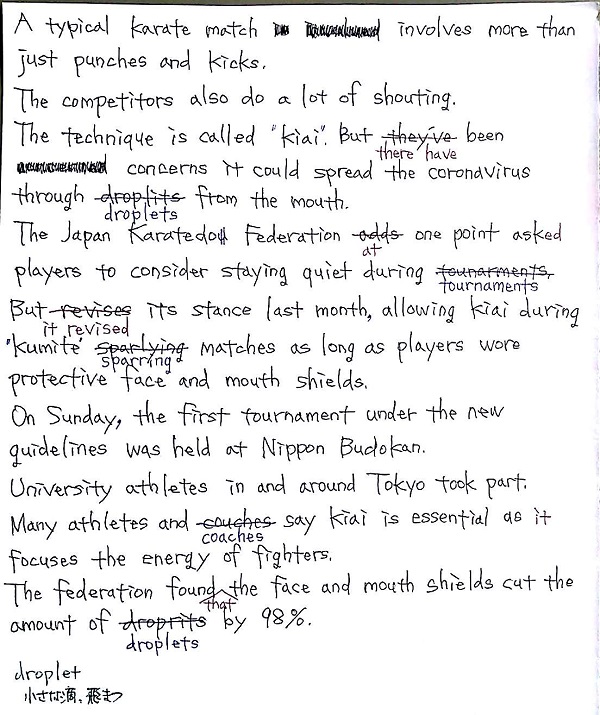 A typical karate match involves more than
just punches and kicks.
The competitors also do a lot of shouting.
The technique is called "kiai". But they've been
there have
concerns it could spread the coronavirus
through droplits from the mouth.
droplets
The Japan Karatedou Federation odds one point asked
at
players to consider staying quiet during tounarments,
tournaments
But revises its stance last month, allowing kiai during
it revised
'kumite' sparlying matches as long as players wore
sparring
protective face and mouth shields.
On Sunday, the first tournament under the new
guidelines was held at Nippon Budokan.
University athletes in and around Tokyo took part.
Many athletes and couches say kiai is essential as it
coaches
focuses the energy of fighters.
The federation found the face and mouth shields cut the
that
amount of droprits by 98%.
droplets
droplet
小さな滴、飛まつ